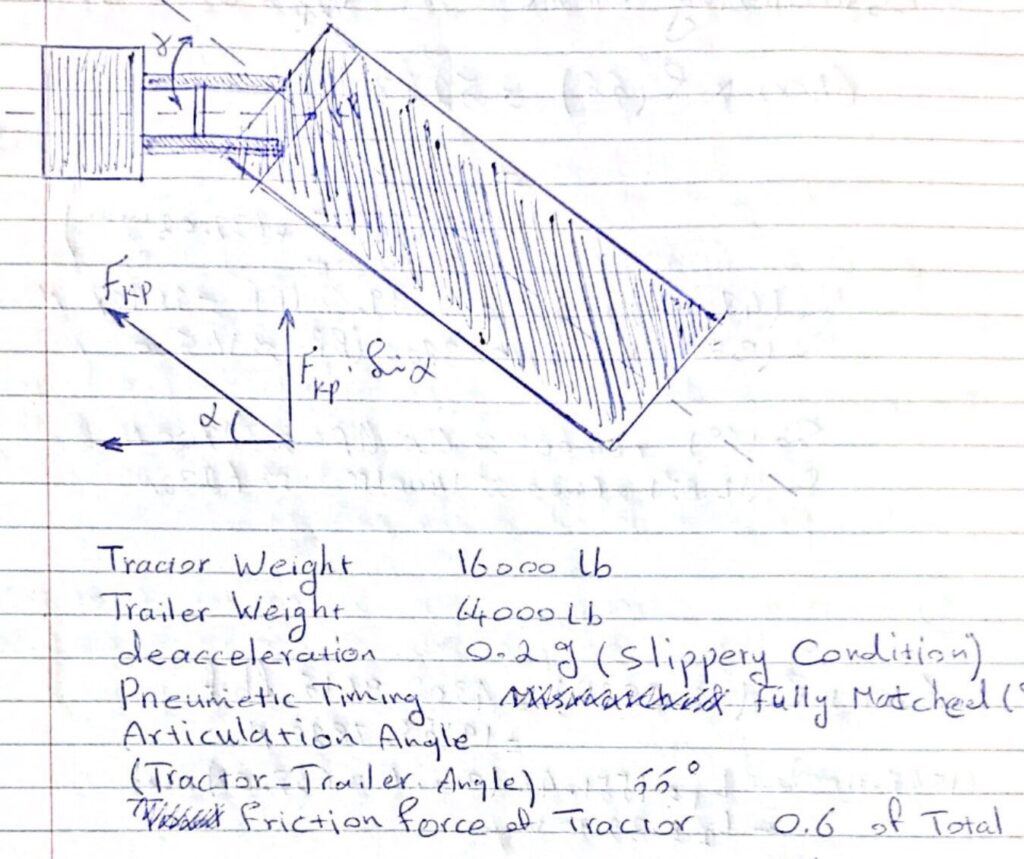 γ
KP
F_KP
F_KP . Sin α
α
Tractor Weight 16000 lb
Trailer Weight 64000 Lb
deacceleration 0.2 g (Slippery Condition)
Pneumetic Timing fully Matched (
Articulation Angle
(Tractor-Trailer Angle) 55°
Friction force of Tractor 0.6 of Total